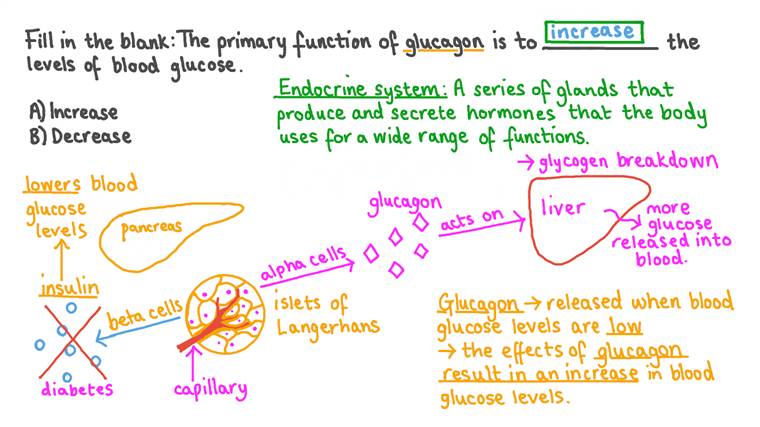 Fill in the blank: The primary function of glucagon is to increase the
levels of blood glucose.
A) Increase
B) Decrease
Endocrine system: A series of glands that
produce and secrete hormones that the body
uses for a wide range of functions.
→ glycogen breakdown
lowers blood
glucose
levels
pancreas
glucagon
acts on
liver
more
glucose
released into
blood.
alpha cells
insulin
beta cells
islets of
Langerhans
diabetes
capillary
Glucagon → released when blood
glucose levels are low
→ the effects of glucagon
result in an increase in blood
glucose levels.